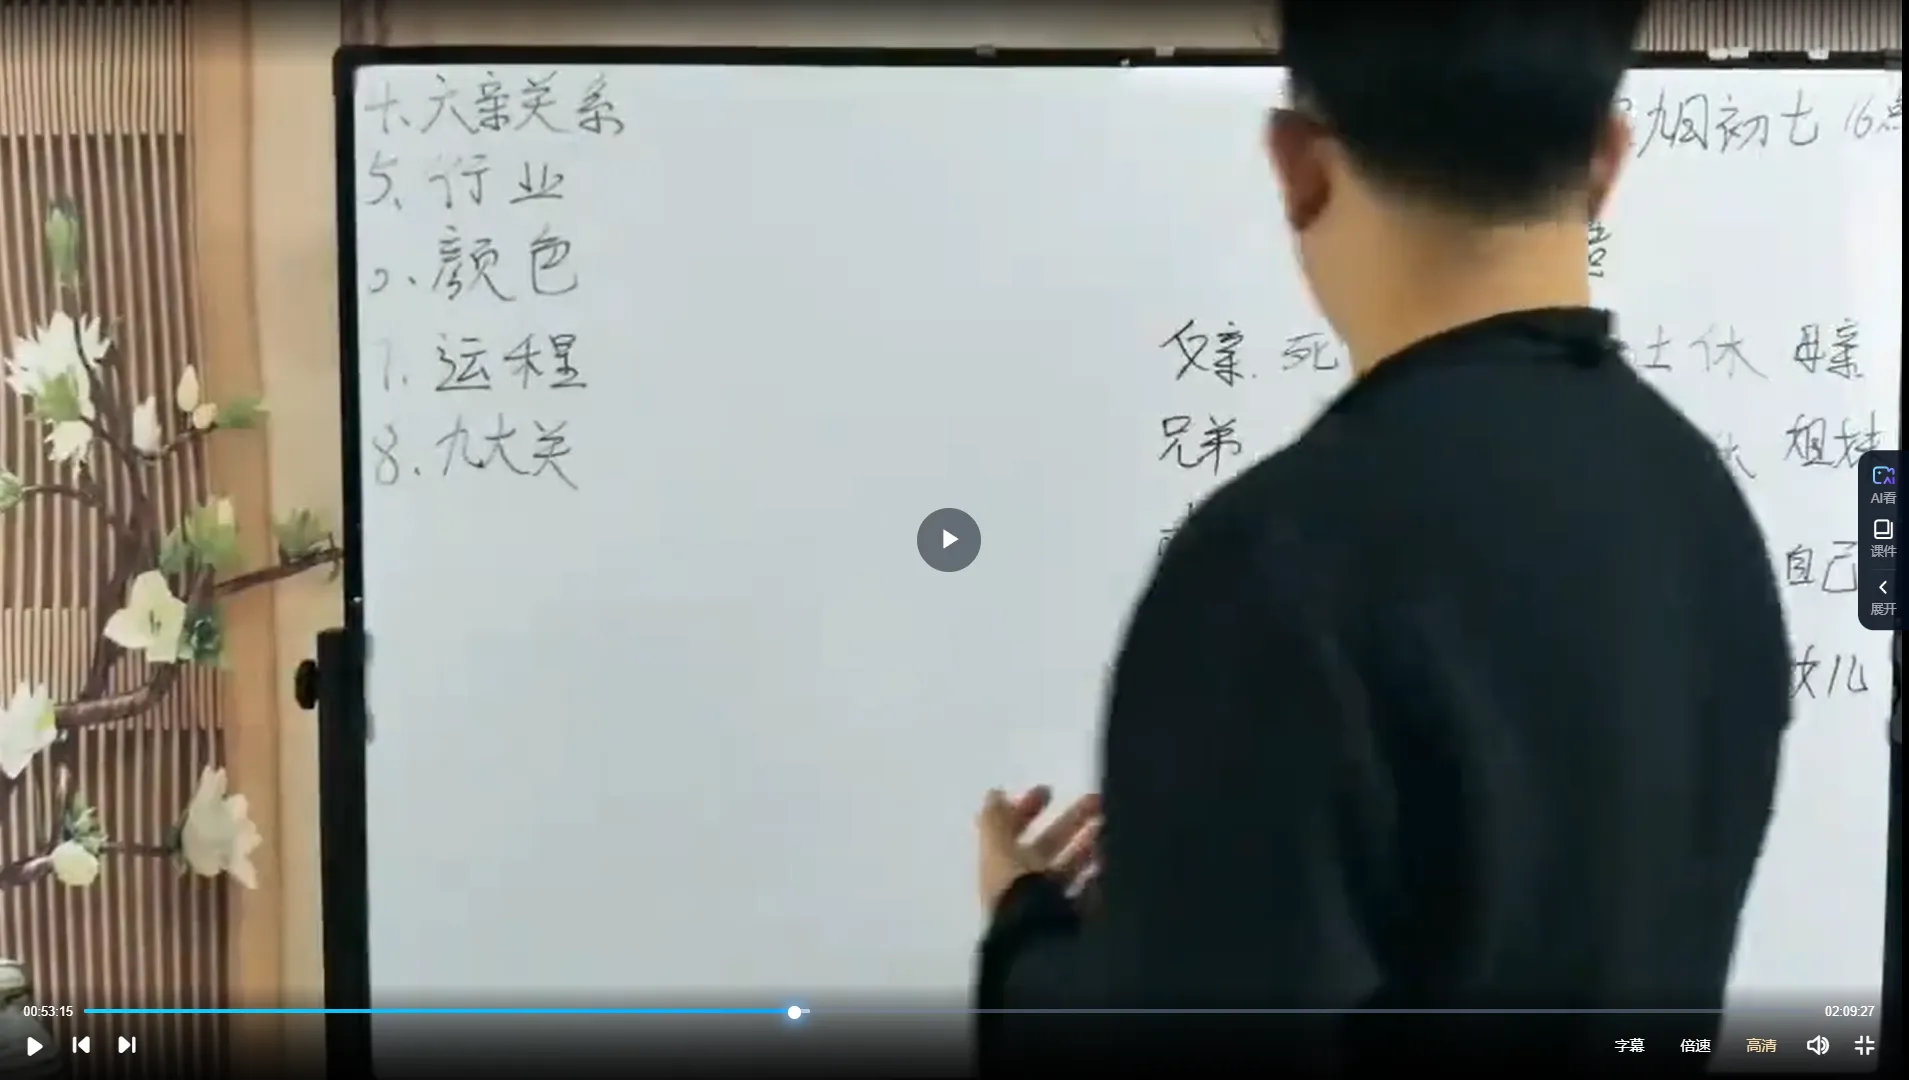 六亲关系
5、行业
、颜色
7.运程
8.九大关
九月初七 16点
父亲. 死
土 休 母亲
兄弟
休 姐妹
自己
女儿
AI看
课件
展开
00:53:15
02:09:27
字幕 倍速 高清